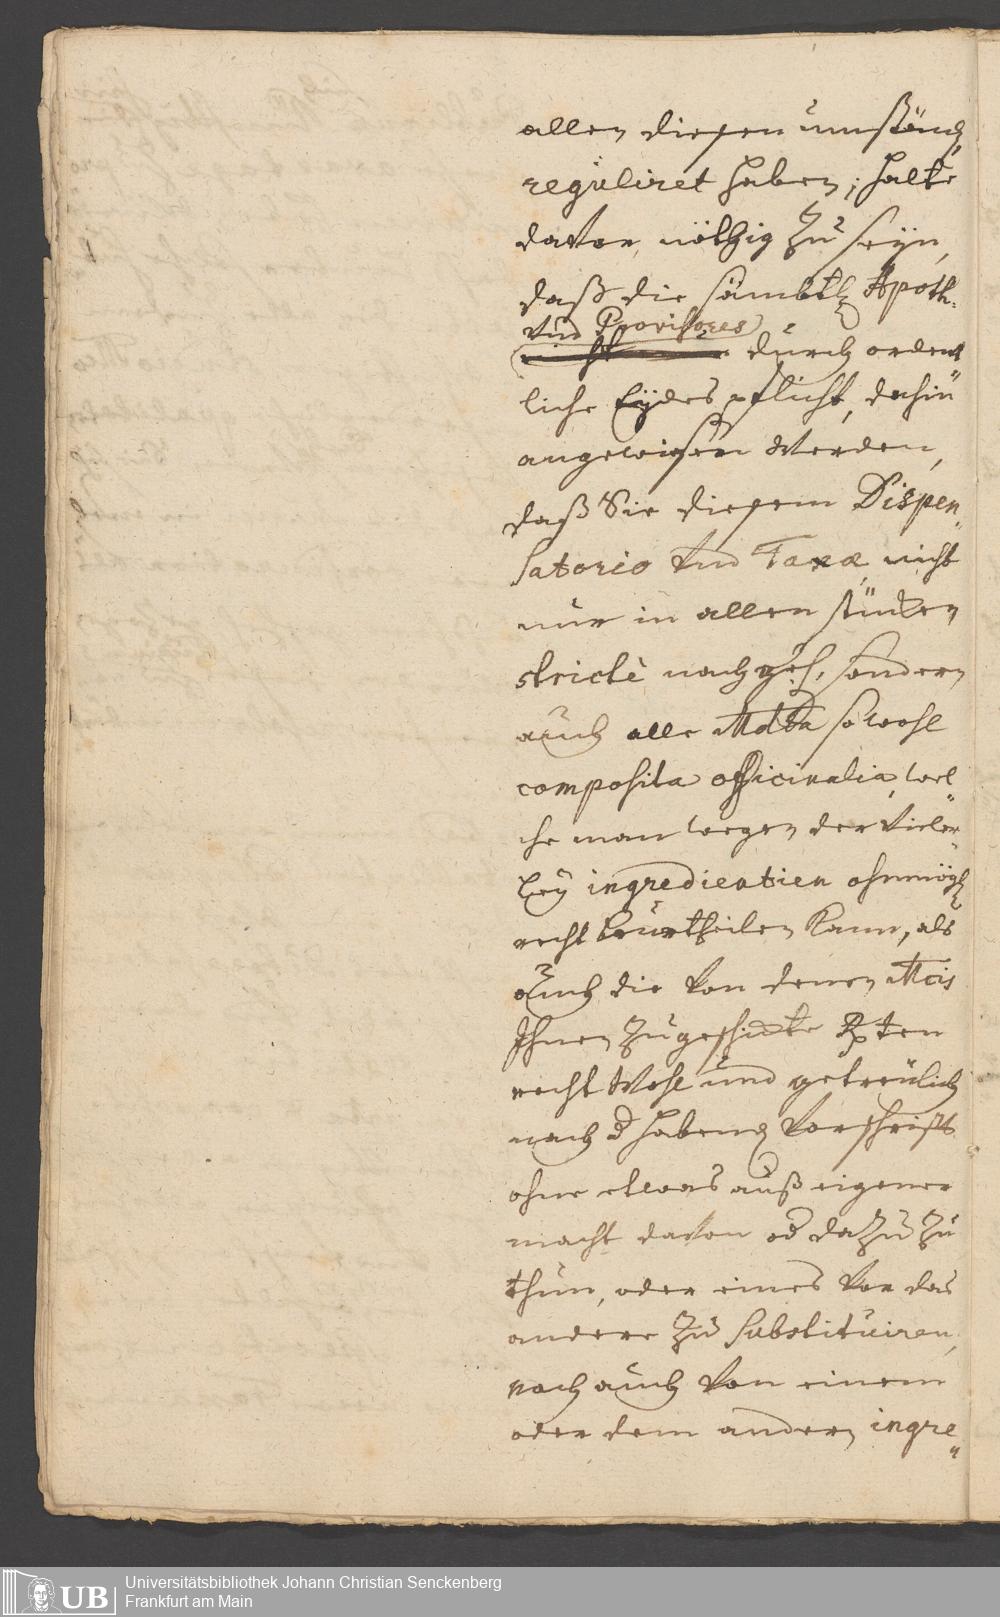 allen diesen umständ
reguliret haben; halte
davor, nöthig zu seyn,
daß die sämbtl Apoth.
Und Provisores
durch ordent
liche Eydes pflicht, dahin
angewiesen werden,
daß Sie diesem Dispen„
satorio Und Taxæ nicht
nur in allen stücken
stricte nachgeh, sondern
auch alle Mdta so wohl
composita officinalia, wel„
che man wegen der Vieler„
ley ingredientien ohnmögl
recht beurtheilen kann, als
auch die Von denen Mcis
Ihnen zugeschickte Rpten
recht Wohl und getreulich
nach d habend Vorschrifft
ohne etwas auß eigener
macht davon od dazu zu
thun, oder eines Vor das
andere zu substituiren,
noch auch Von einem
oder dem andern ingre„
UB
Universitätsbibliothek Johann Christian Senckenberg
Frankfurt am Main